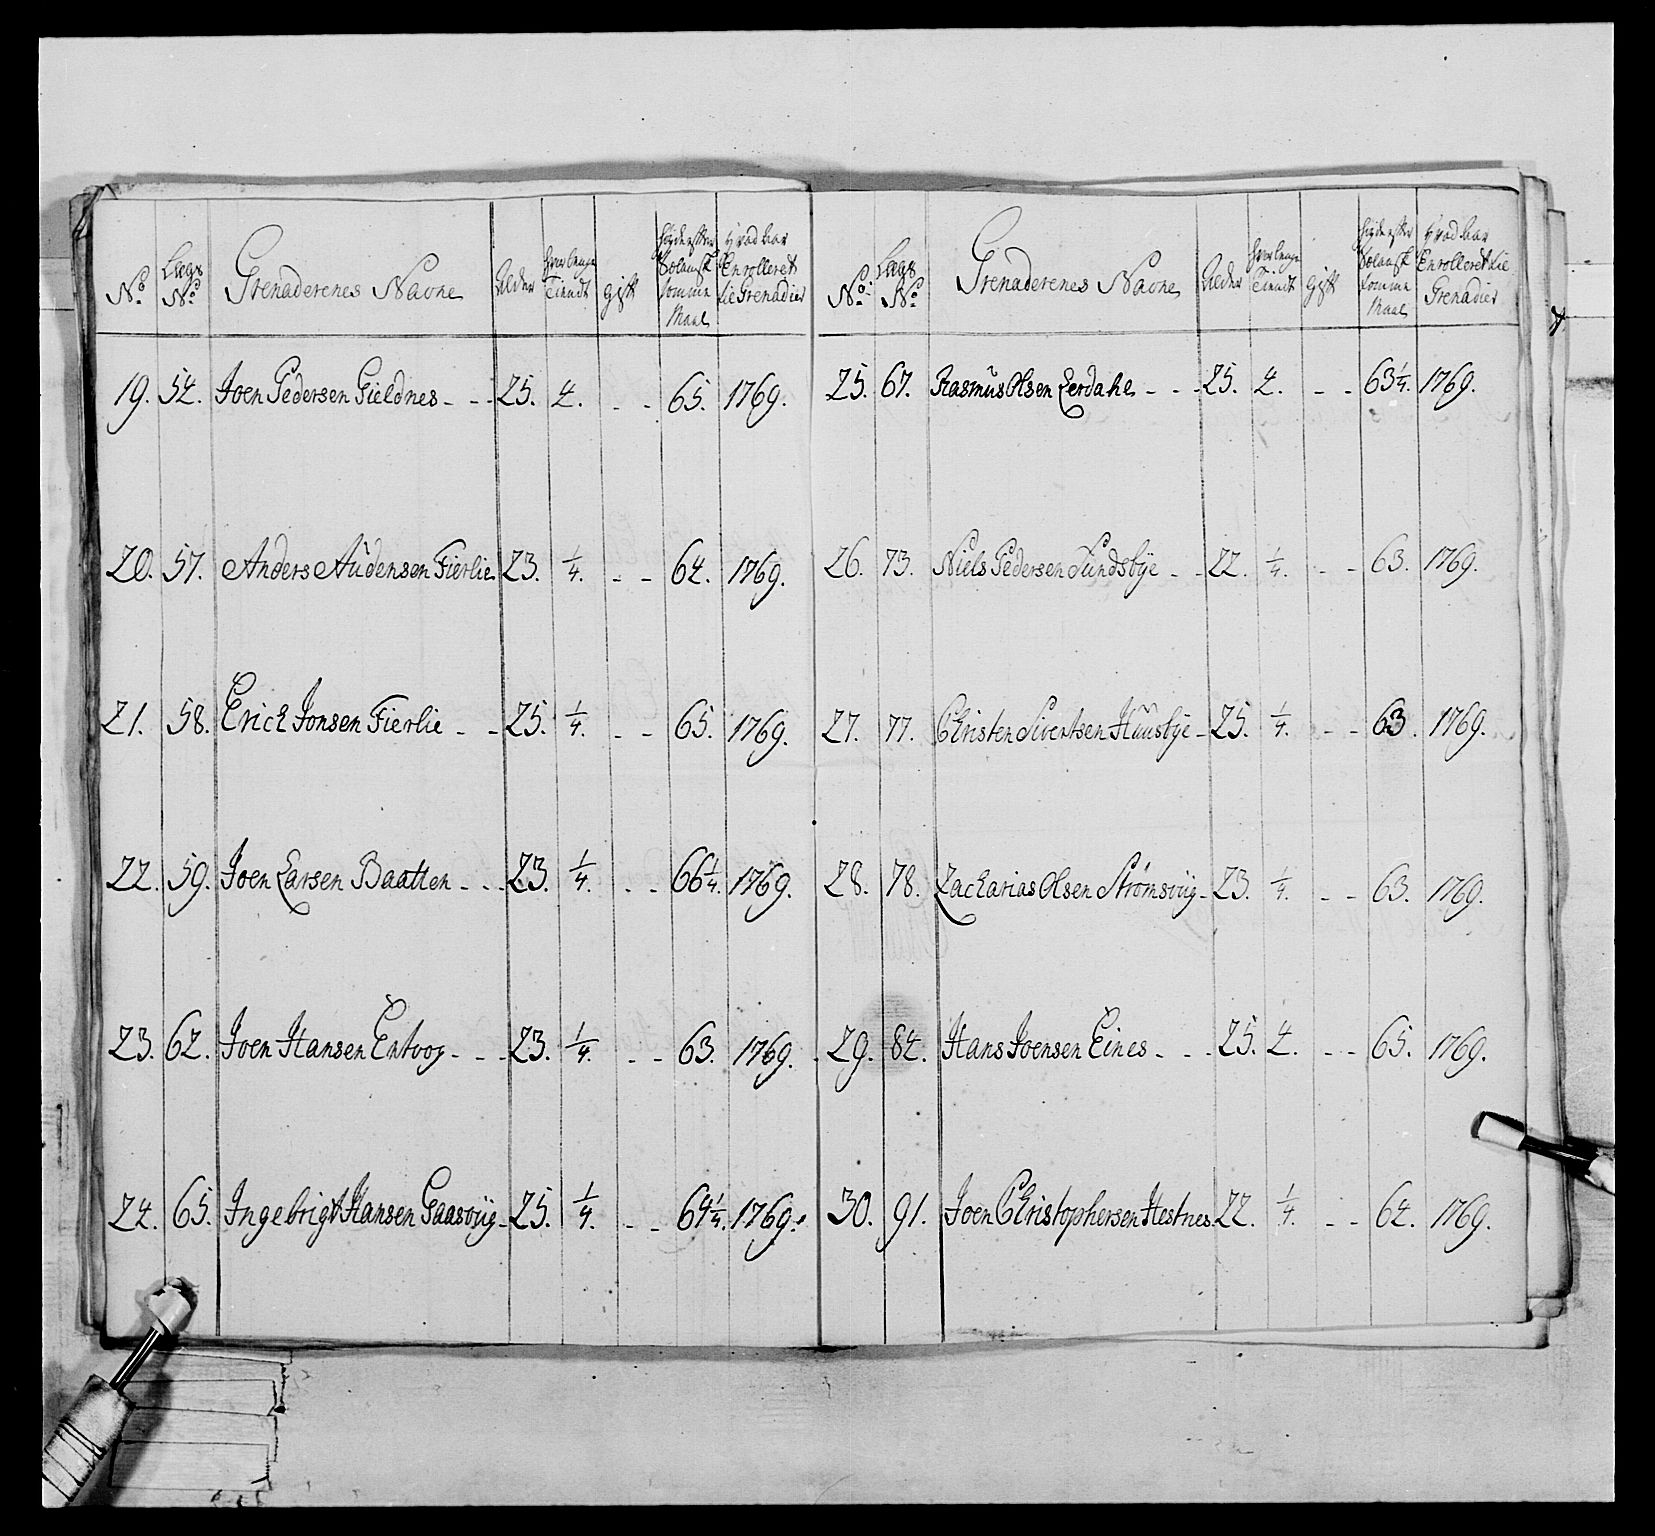 No. Lægs No. Grenaderenes Navne Alder hvor længe Tiendt Gift Høyde efter Tomme Maal Hvad Aar Enrolleret til Grenadier
19. 54. Joen Pedersen Gieldnes - - 25. 4. - - 65. 1769.
20. 57. Anders Audensen Fierlie 23. 1/4. - - 64. 1769.
21. 58. Erich Jonsen Fierlie - - 25. 1/4. - - 65. 1769.
22. 59. Joen Larsen Baatten - - 23. 1/4. - - 66 1/4. 1769.
23. 62. Joen Hansen Entvog - - 23. 1/4. - - 63. 1769.
24. 65. Ingebrigt Hansen Gaasvüg - 25. 1/4. - - 64 1/4. 1769.
No. Lægs No. Grenaderenes Navne Alder hvor længe Tiendt Gift Høyde efter Tomme Maal Hvad Aar Enrolleret til Grenadier
25. 67. Rasmus Olsen Lerdahl - - 25. 4. - - 63 1/4. 1769.
26. 73. Niels Pedersen Sundsbye - - 22. 1/4. - - 63. 1769.
27. 77. Christen Sivertsen Huusbye - 25. 1/4. - - 63. 1769.
28. 78. Zacharias Olsen Strømsvüg - 23. 1/4. - - 63. 1769.
29. 84. Hans Joensen Eines - - 25. 4. - - 65. 1769.
30. 91. Joen Christophersen Hestnes 22. 1/4. - - 64. 1769.